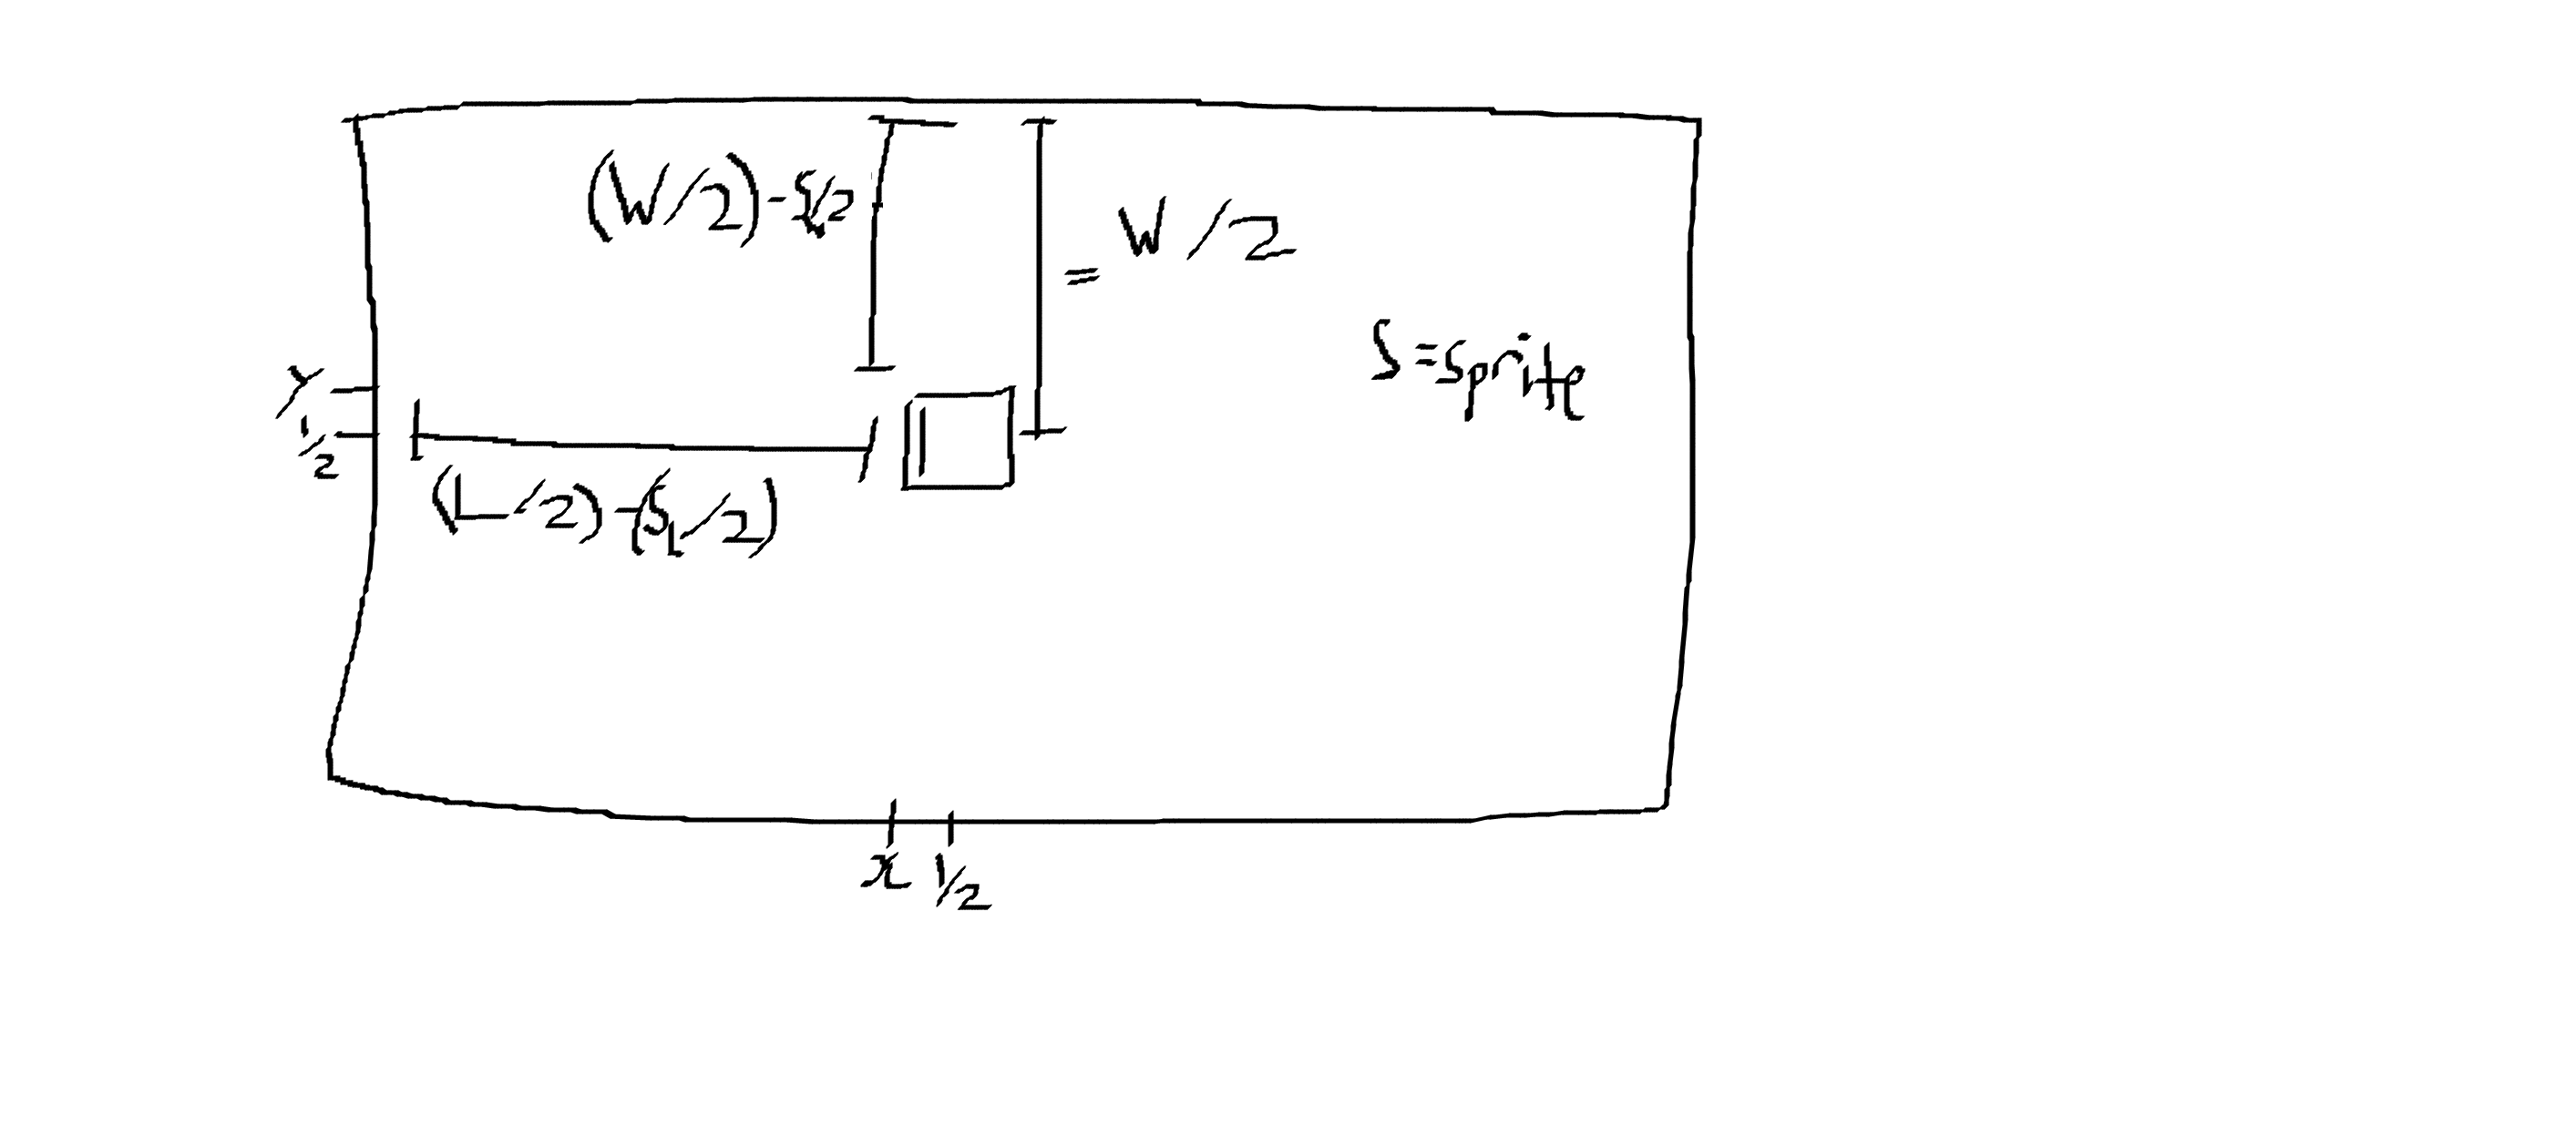 (W/2)-Sw/2
= W/2
S=sprite
Y
1/2
(L/2)-(SL/2)
x 1/2